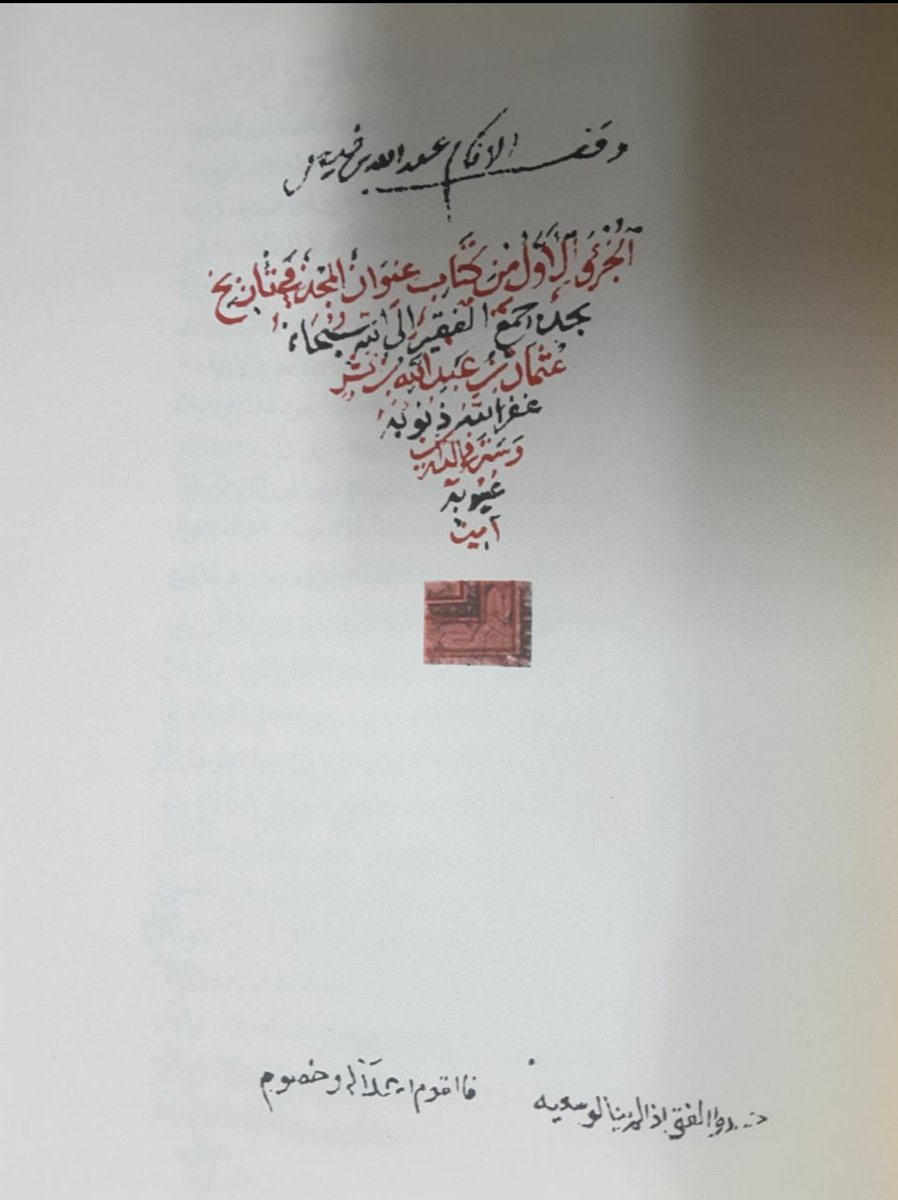 وقف الإمام عبد الله بن فيصل
الجزؤ الاول من كتاب عنوان المجد في تاريخ
نجد جمع الفقير الى الله سبحانه
عثمان بن عبد الله بن بشر
غفر الله ذنوبه
وستر في الدارين
عيوبه
آمين
حسدوا الفتى اذ لم ينالوا سعيه فااقوم اعداً له وخصوم